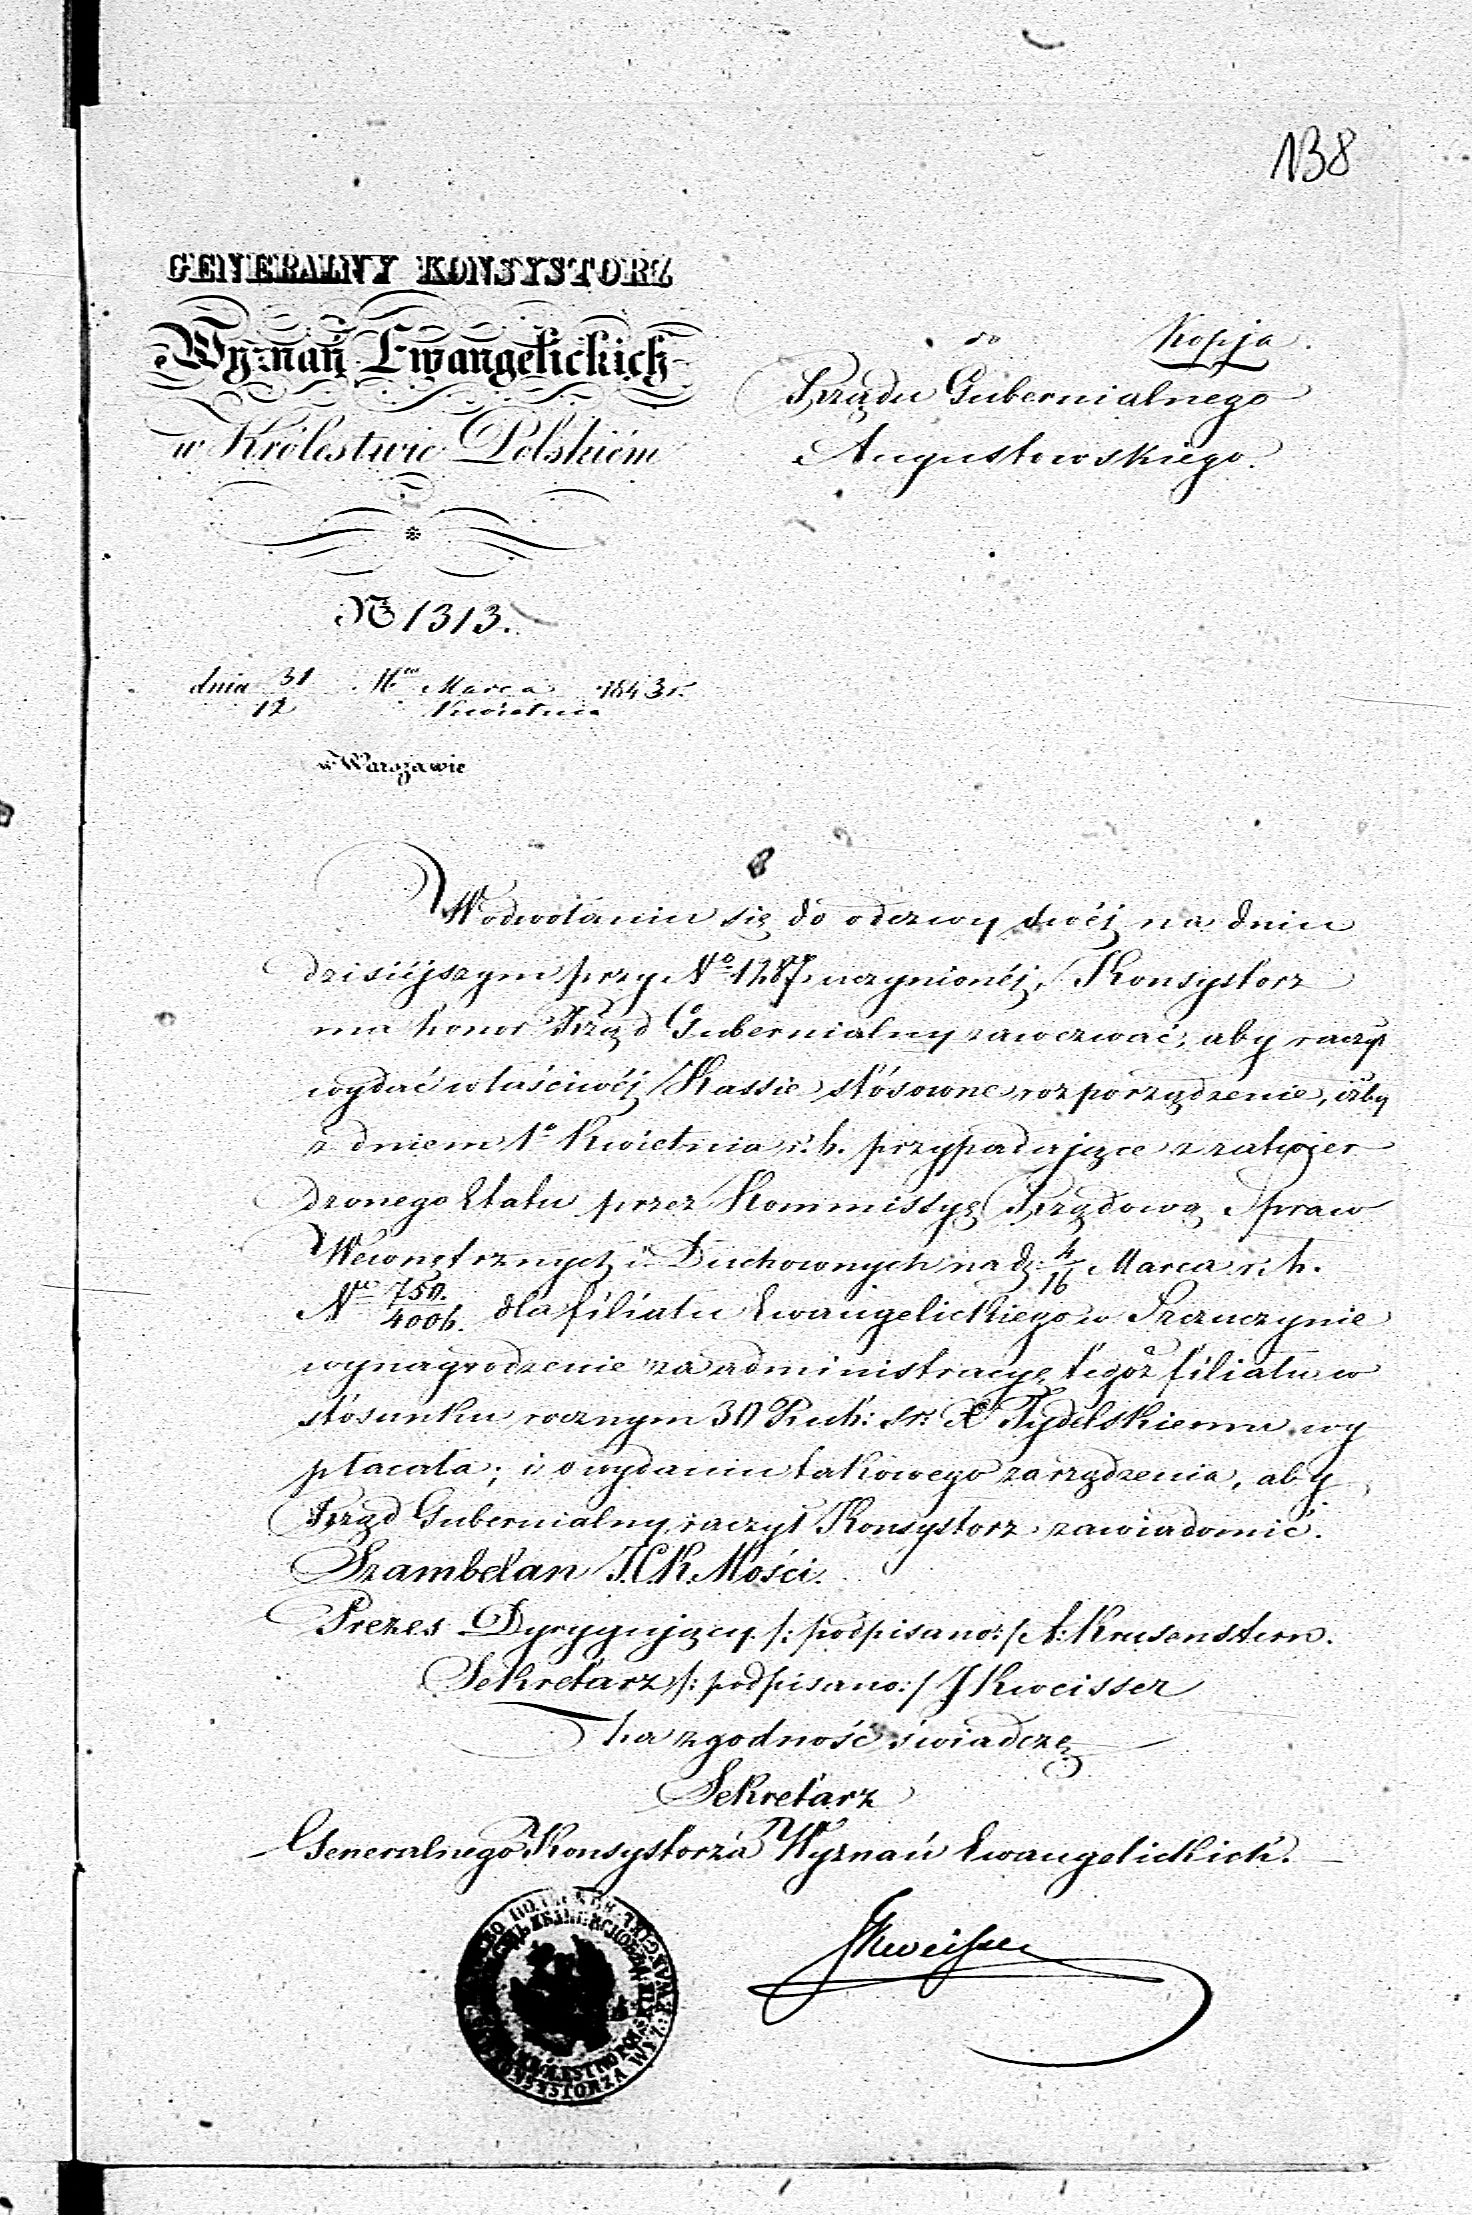 138
GENERALNY KONSYSTORZ
Wyznań Ewangelickich
w Królestwie Polskiém
№ 1313.
dnia 31/12 Marca/Kwietnia 1843 r.
w Warszawie
do Kopja.
Rządu Gubernialnego
Augustowskiego.
W odwołaniu się do odezwy swéj na dniu
dzisiéjszym przy No 1287 uczynionéj, Konsystorz
ma honor Rząd Gubernialny zawezwać, aby raczył
wydać właściwéj Kassie stósowne rozporządzenie, iżby
z dniem 1o Kwietnia r. b. przypadające z zatwier
dzonego Etatu przez Kommissyę Rządową Spraw
Wewnętrznych i Duchownych na d. 4/16 Marca r. b.
No 750./4006. dla filiału Ewangelickiego w Szczuczynie
wynagrodzenie za administracyę tegoż filiału w
stósunku rocznym 30 Rub: sr: X Rydelskiemu wy
płacała; i o wydaniu takowego zarządzenia, aby
Rząd Gubernialny raczył Konsystorz zawiadomić.
Szambelan J.C.K. Mości.
Prezes Dyrygujący /: podpisano: / A: Krusenstern.
Sekretarz /: podpisano: / J Kweisser
Za zgodność świadczę
Sekretarz
Generalnego Konsystorza Wyznań Ewangelickich.
JKweisser